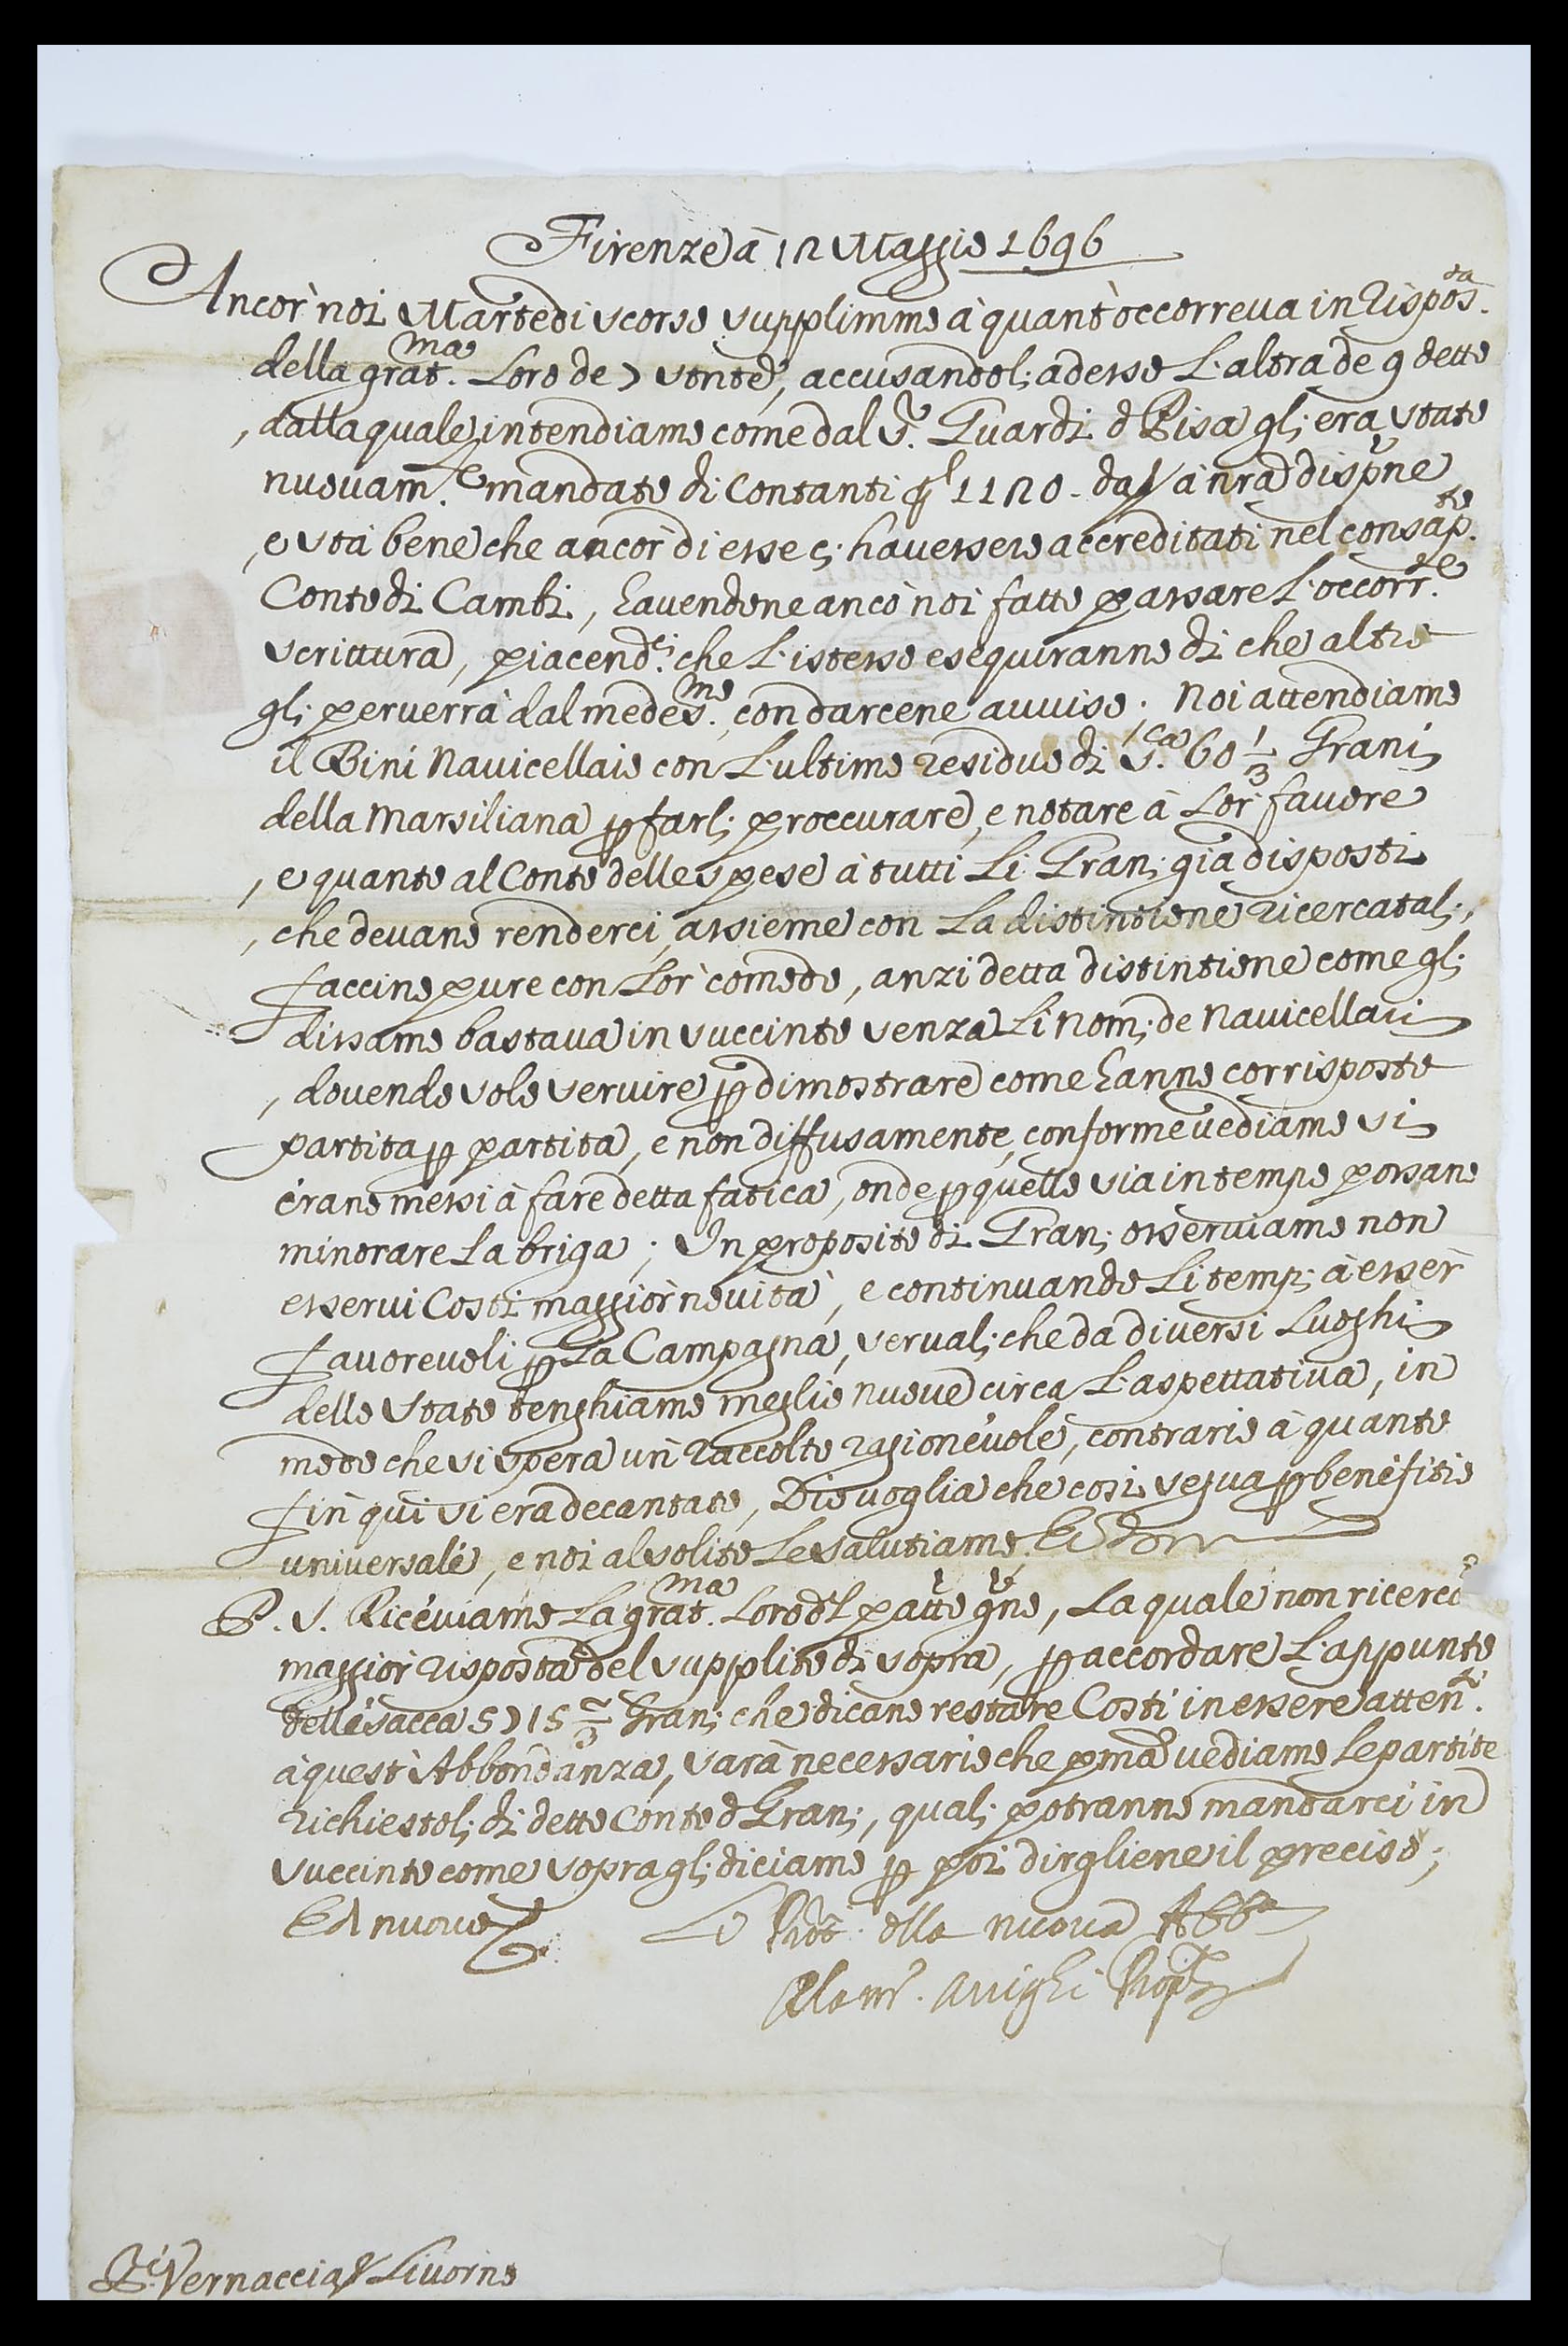 Firenze à 12 Maggio 1696
Ancor' noi Martedi scorso supplimmo à quant' occorreva in Rispos.ta
della grat.ma Loro de 7 stante, accusandol; adesso L'altra de 9 detto
, dalla quale intendiamo come dal S.r Guardi d Pisa gl; era stato
nuovam.te mandato di Contanti 1120 - da à nra dispne
, e stà bene che ancor di esse c; havessero accreditati nel consap.to
Conto di Cambi, havendone anco noi fatto passare L'occorr.te
scrittura, piacend.i che L'istesso esequiranno di che altro
gl; perverrà dal medes.mo, con darcene avviso; Noi attendiamo
il Bini Navicellaio con L'ultimo residuo di S.ca 60 1/3 Grani
della Marsiliana p farl; proccurare, e notare à Lor' favore
, e quanto al Conto delle spese à tutti Li Gran; già disposti
, che devano renderci, assieme con La distintione ricercatal;,
faccino pure con Lor' comodo, anzi detta distintione come gl;
dissamo bastava in succinto senza Li nom; de Navicellari
, dovendo solo servire p dimostrare come hanno corrisposto
partita p partita, e non diffusamente, conforme vediamo si
erano messi à fare detta fatica, onde p quello sia in tempo possano
minorare La briga; In proposito di Gran; osserviamo non
esservi Costì maggior novità, e continuando Li temp; à esser'
favorevoli p La Campagna, serval; che da diversi Luoghi
dello Stato tenghiamo meglio nuove circa L'aspettativa, in
modo che si spera un' Raccolto ragionevole, contrario à quanto
fin qui si era decantato, Dio voglia che così segua p benefitio
universale, e noi al solito Le salutiamo
P. S. Riceviamo La grat.ma Loro dl patte gne, La quale non ricerca
maggior risposta del supplito di sopra, p accordare L'appunto
delle sacca 5715 2/3 Gran; che dicano restare Costì in essere atten.ti
à quest' Abbondanza, sarà necessario che pma vediamo Le partite
richiestol; di detto Conto d Gran;, qual; potranno mandarci in
succinto come sopra gl; diciamo p poi dirgliene il preciso;
Ed nuovo
Li della nuova Abb.a
Arrighi
Vernaccia Livorno